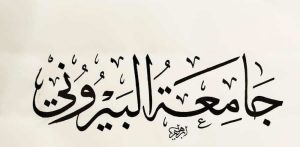 جَامِعَةُ البَيْرُونِي